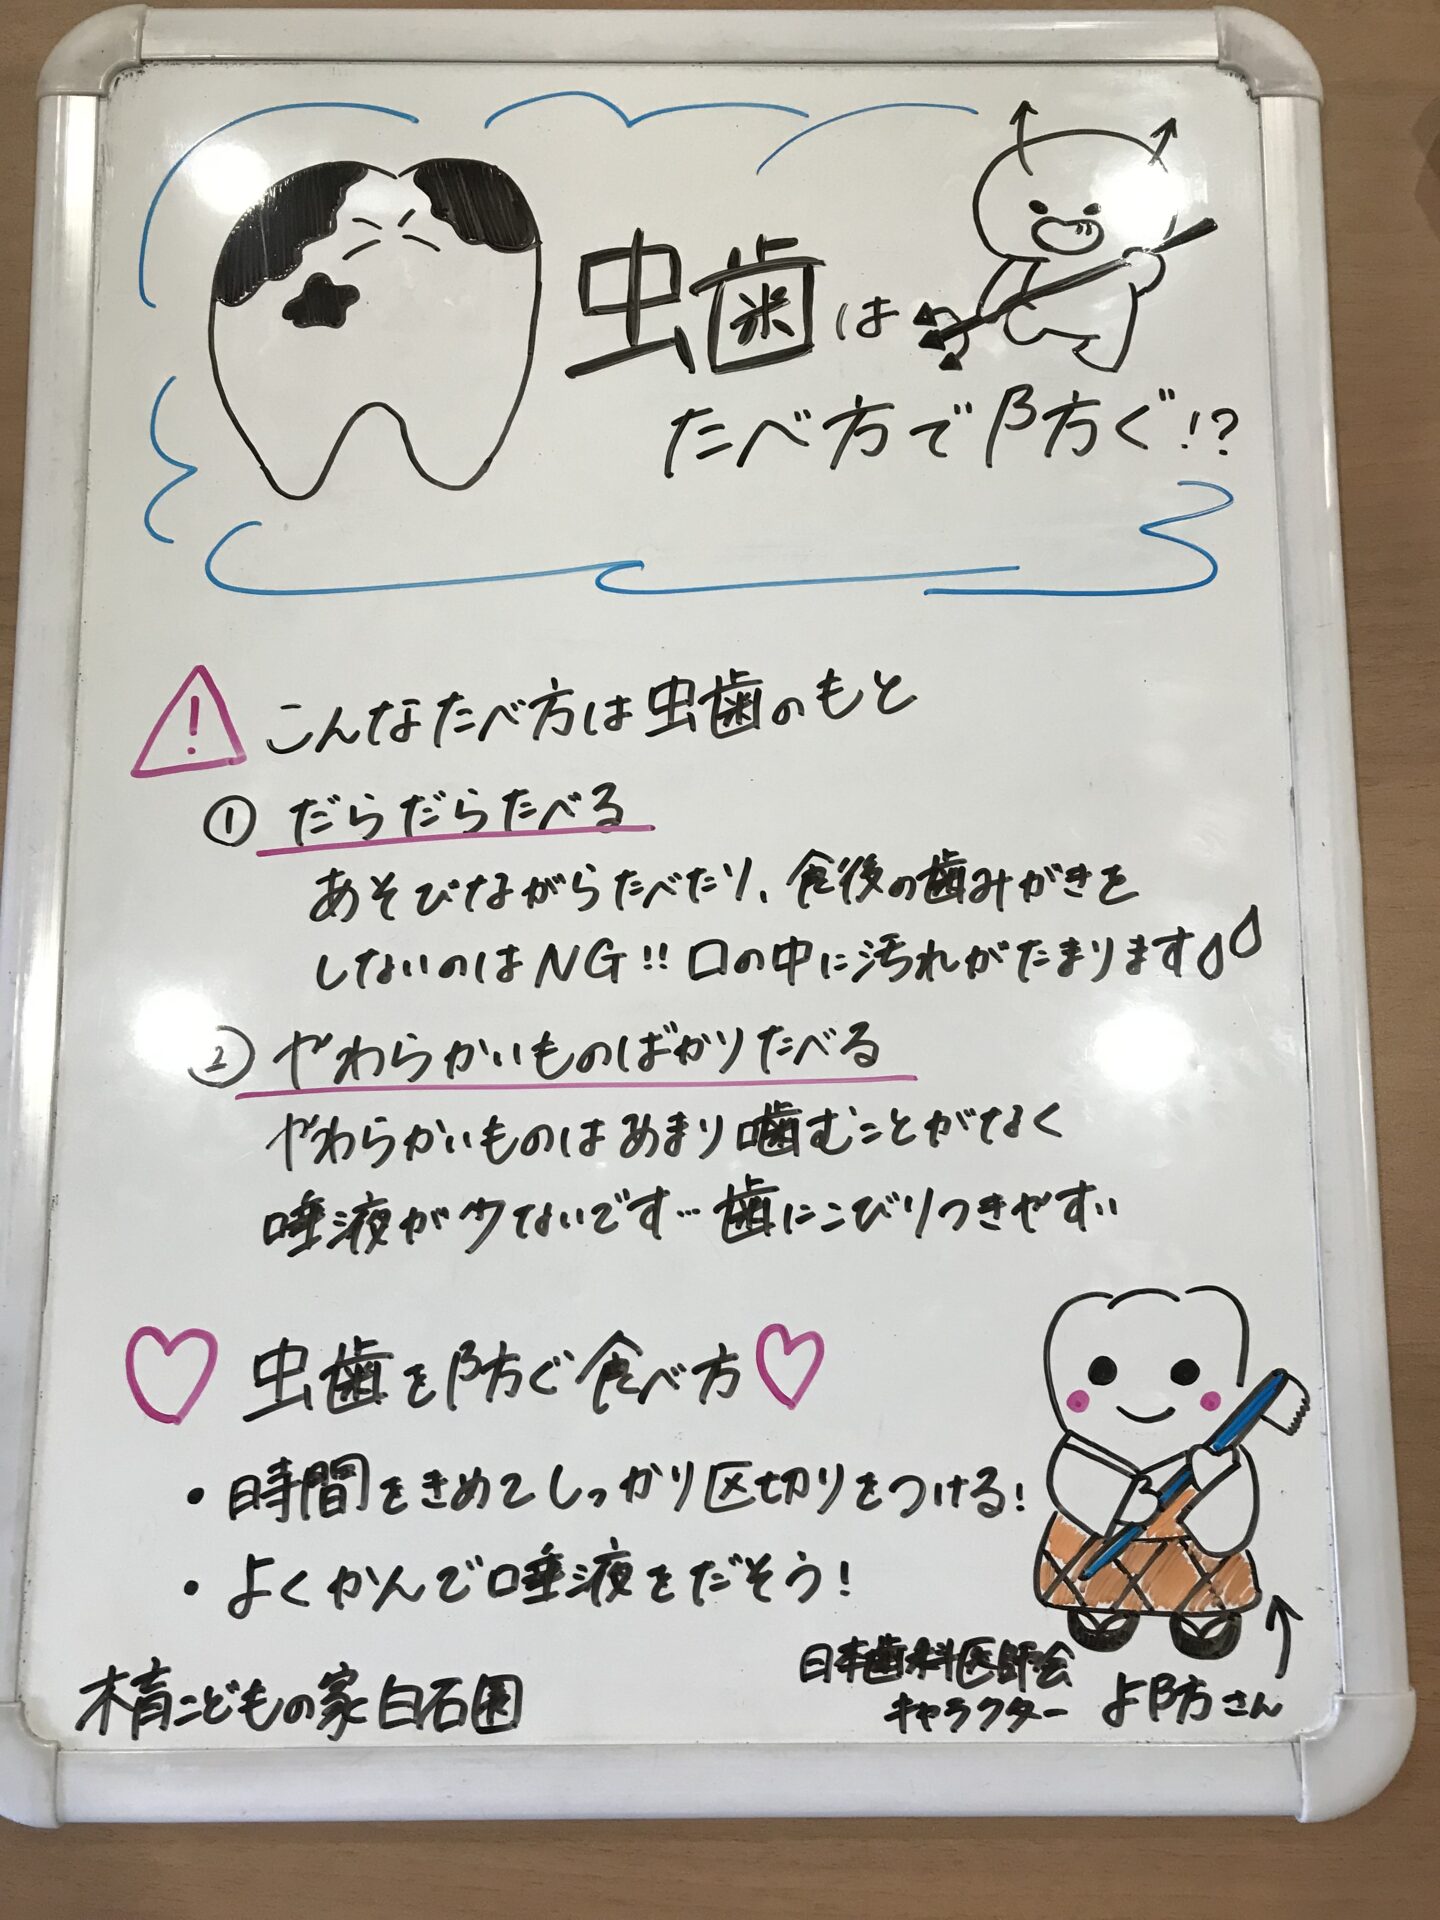 虫歯は
たべ方で防ぐ!?
! こんなたべ方は虫歯のもと
① だらだらたべる
あそびながらたべたり、食後の歯みがきを
しないのはNG!! 口の中に汚れがたまります
② やわらかいものばかりたべる
やわらかいものはあまり噛むことがなく
唾液が少ないです…歯にこびりつきやすい
♡ 虫歯を防ぐ食べ方 ♡
・時間をきめてしっかり区切りをつける!
・よくかんで唾液をだそう!
日本歯科医師会
キャラクター よ防さん
木育こどもの家白石園